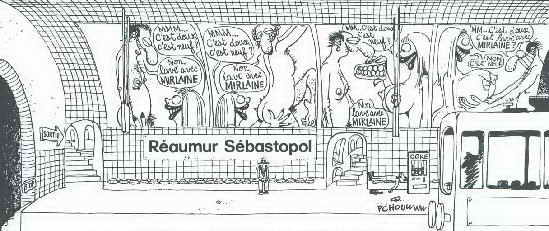 MMM..
C'est doux,
c'est neuf?
Non,
lavé avec
MIRLAINE
MMM..
C'est doux,
c'est neuf?
Non,
lavé avec
MIRLAINE
MM..
C'est doux
c'est
neuf?
Non
lavé avec
MIRLAINE
MM.. C'est doux,
c'est lavé avec
MIRLAINE?!
NON!
C'EST NEUF
SORTIE
Réaumur Sébastopol
COKE